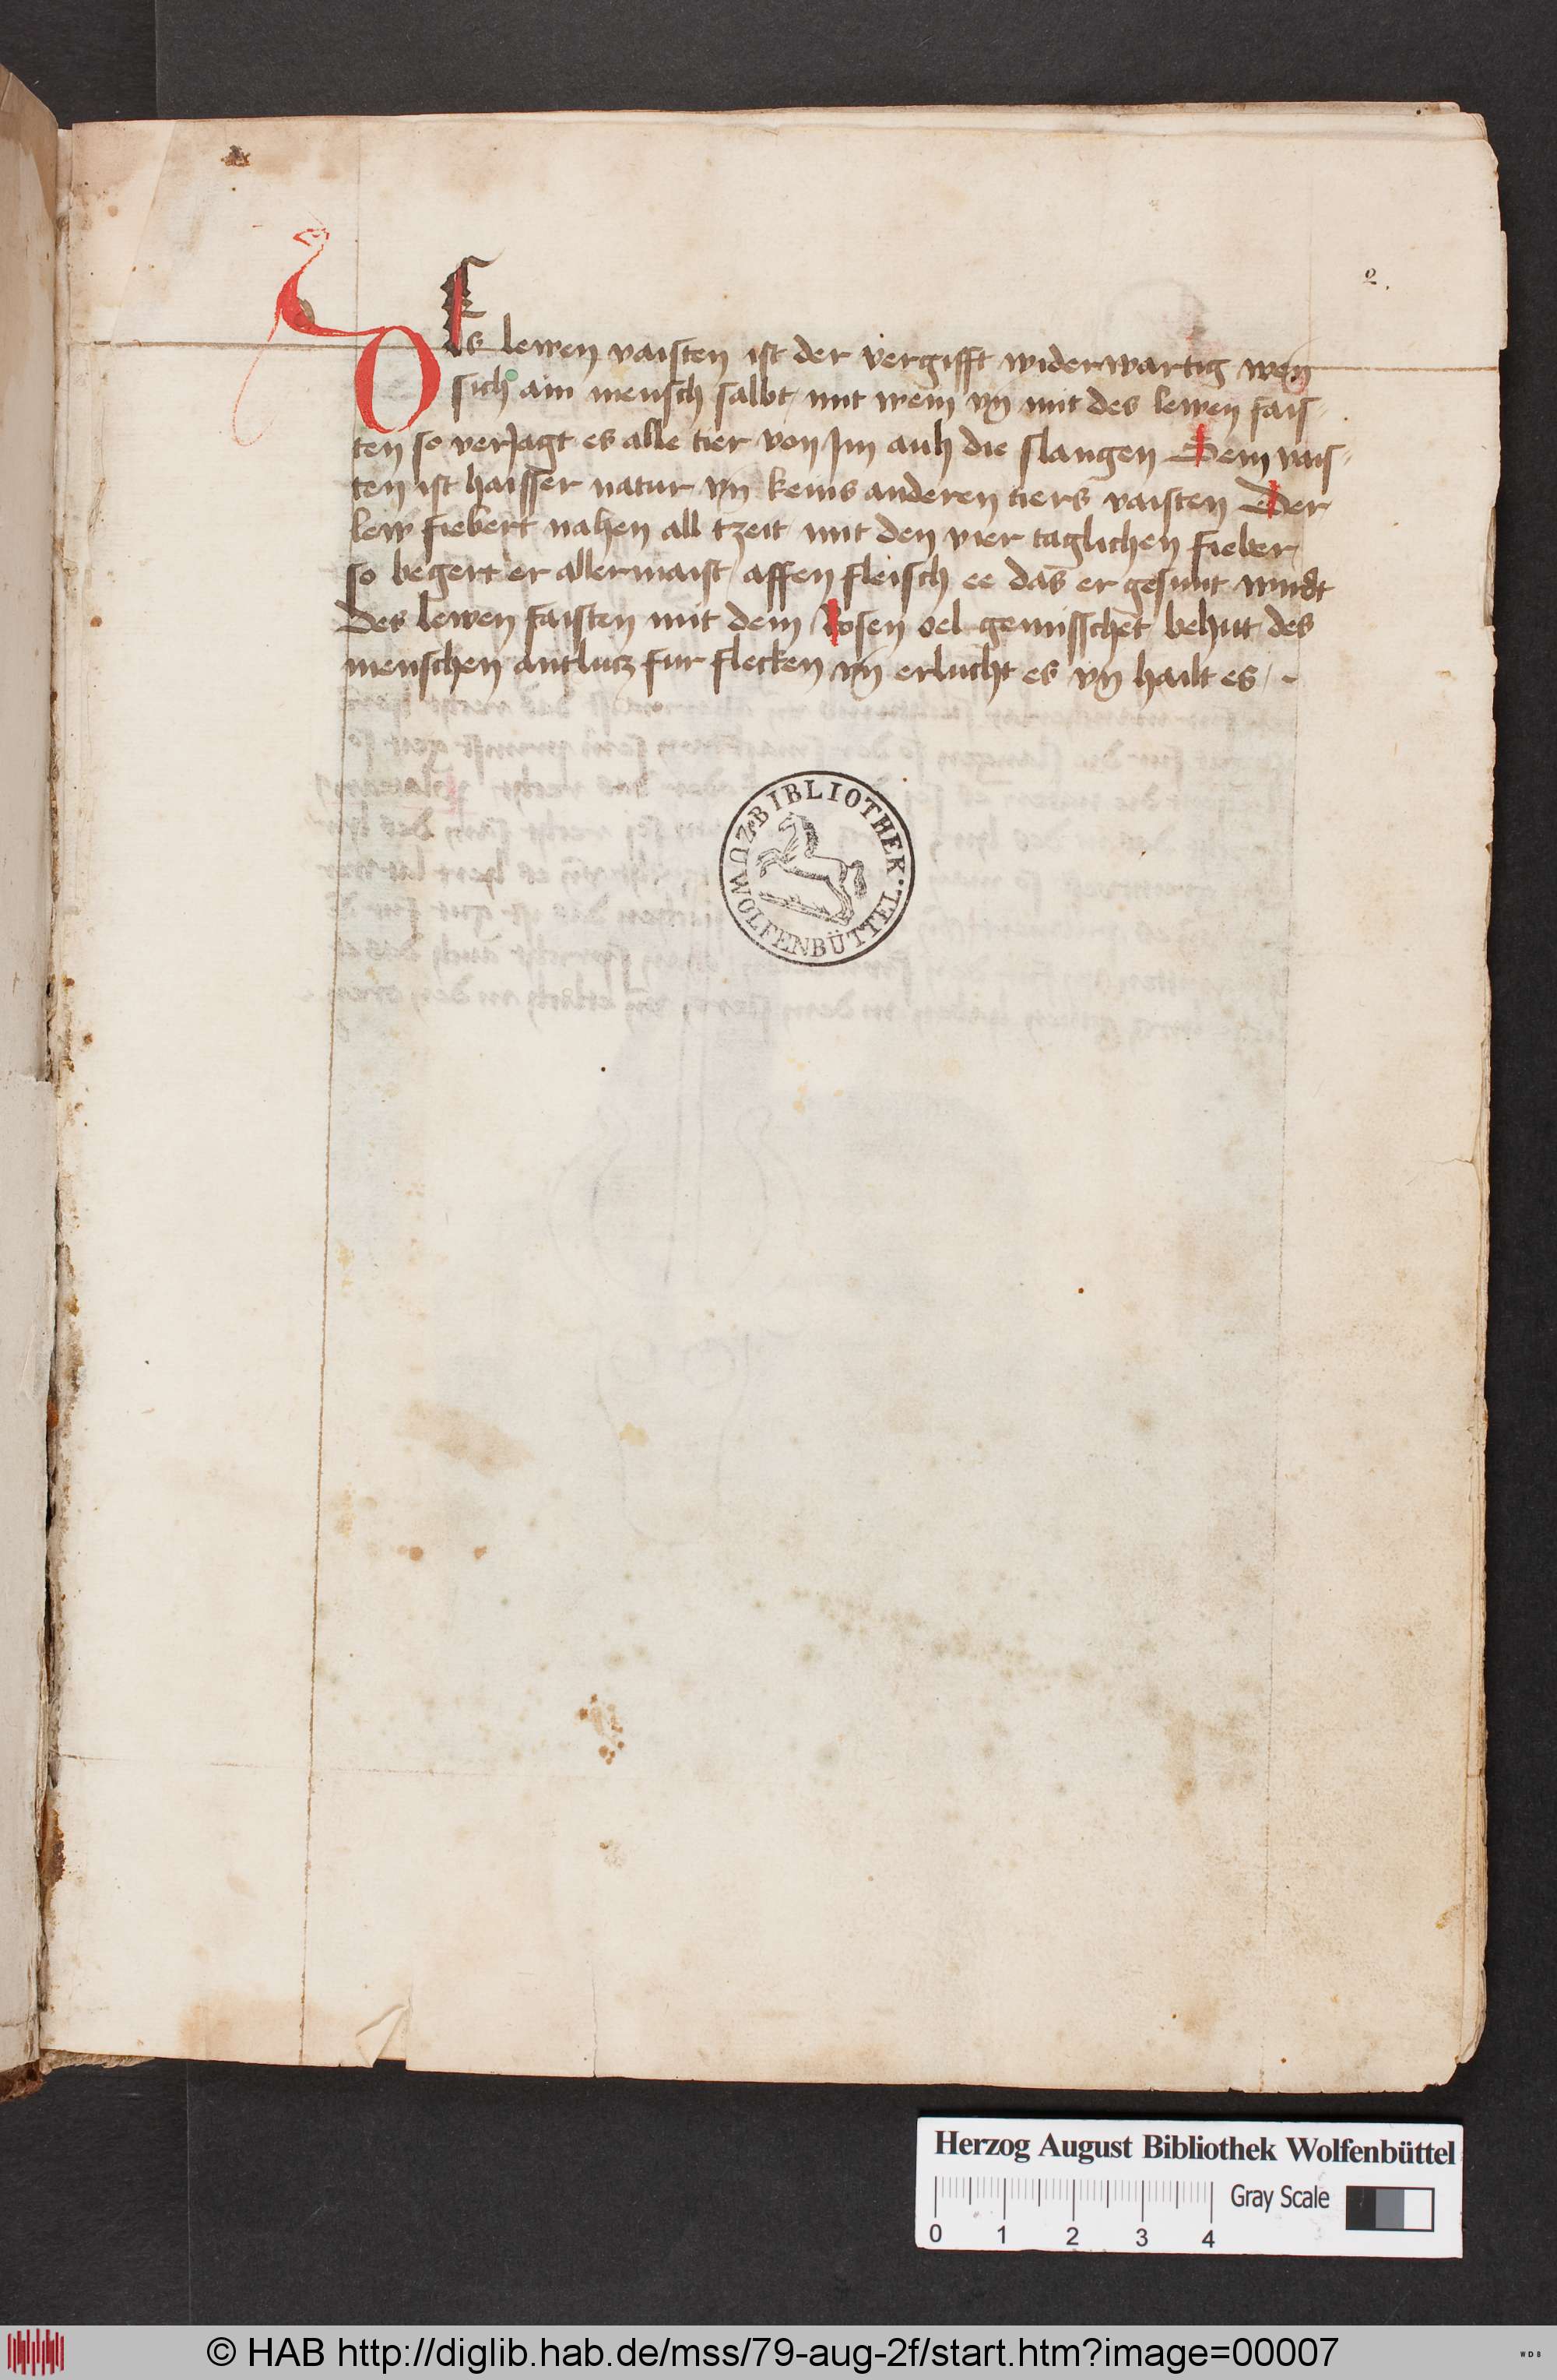 2.
DEs lewen vaisten ist der vergifft widerwartig wen̄
sich ain mensch salbt mit wein vn̄ mit des lewen fais-
ten so verJagt es alle tier von Jm auh die slangen Sein vais-
ten ist haisser natur vn̄ keins anderen tiers vaisten Der
lew fiebert nahen all tzeit mit den vier taglichen fieber
so begert er allermaist affen fleisch ee das er gesunt wirdt
Des lewen faisten mit dem Rosen oel gemisschet behut des
menschen antlucz fur flecken vn̄ erlucht es vn̄ hailt es
BIBLIOTHEK · ZU WOLFENBÜTTEL ·
Herzog August Bibliothek Wolfenbüttel
Gray Scale
0 1 2 3 4
© HAB http://diglib.hab.de/mss/79-aug-2f/start.htm?image=00007
WDB